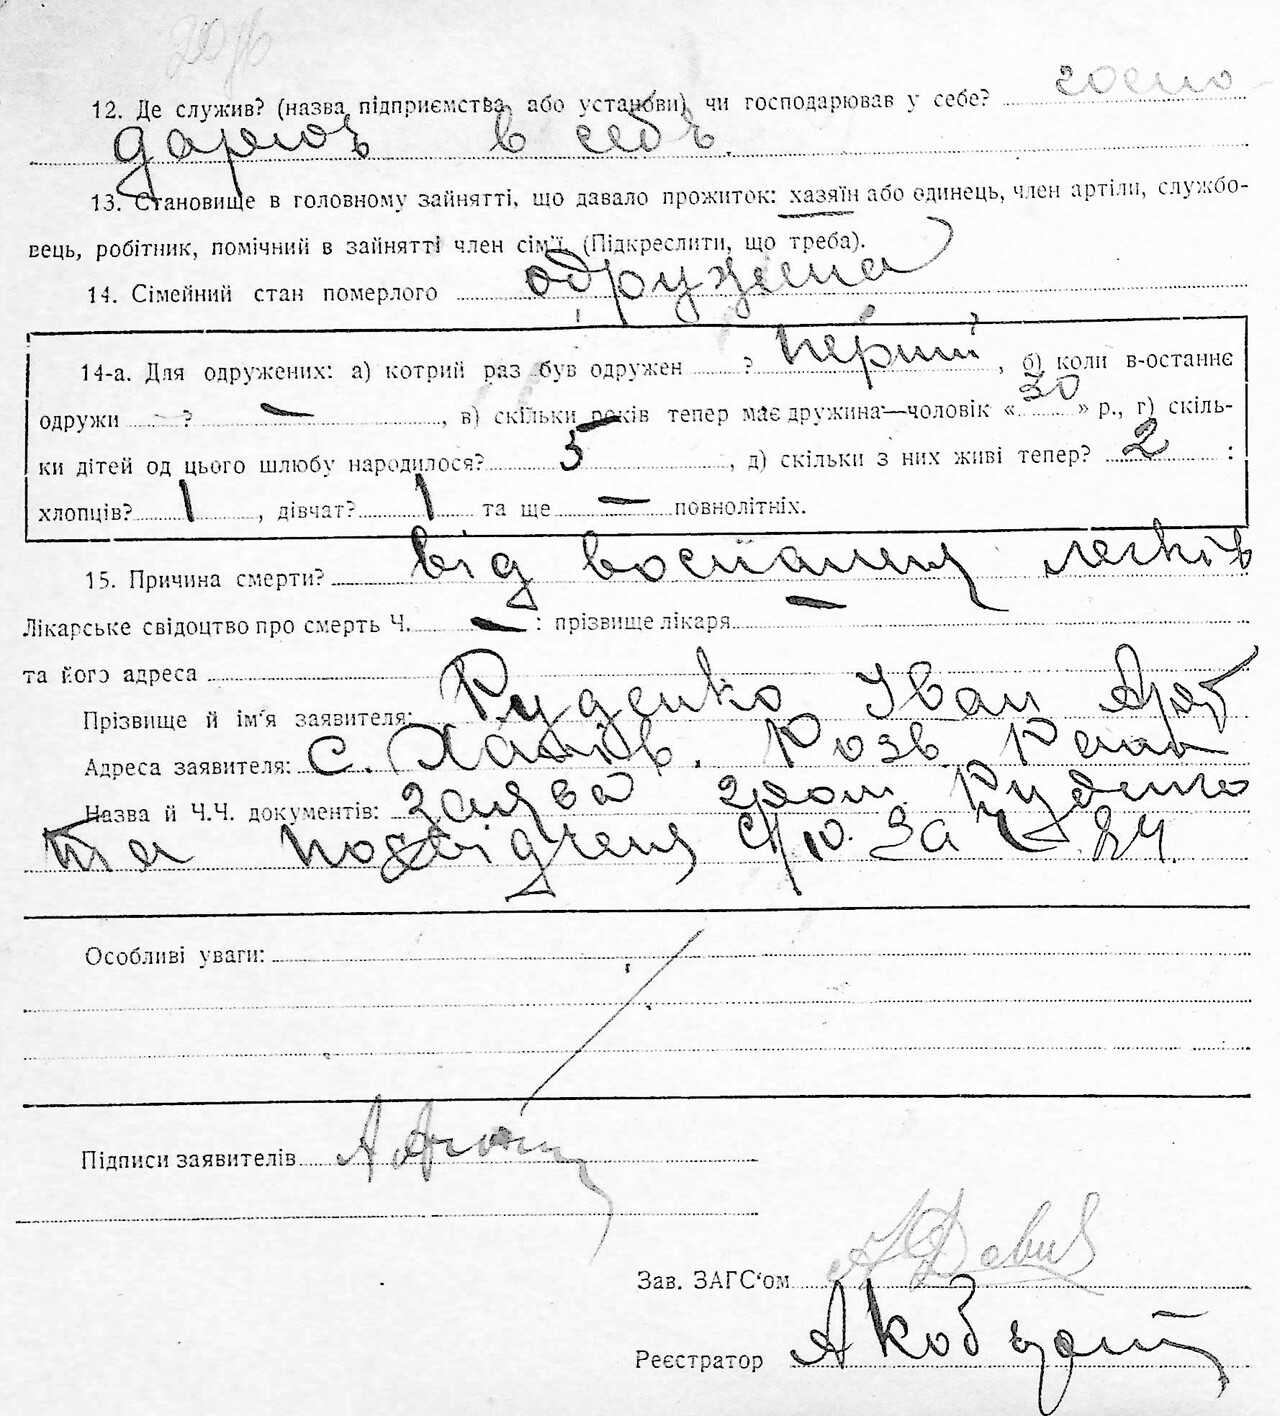 12. Де служив? (назва підприємства або установи) чи господарював у себе? госпо
дарюв в себе.
13. Становище в головному зайнятті, що давало прожиток: хазяїн або одинець, член артіли, службо-
вець, робітник, помічний в зайнятті член сім'ї. (Підкреслити, що треба).
14. Сімейний стан померлого одружена
14-а. Для одружених: а) котрий раз був одружен ? перший, б) коли в-останнє
одружи ? —, в) скільки років тепер має дружина—чоловік «30» р., г) скіль-
ки дітей од цього шлюбу народилося? 5, д) скільки з них живі тепер? 2 :
хлопців? 1, дівчат? 1 та ще — повнолітніх.
15. Причина смерти? від воспаления легків
Лікарське свідоцтво про смерть Ч. — : прізвище лікаря —
та його адреса
Прізвище й ім'я заявителя: Руденко Іван
Адреса заявителя: с. Розв.
Назва й Ч.Ч. документів: заява гром. Руденко
та посвідченя с/р. За № 84.
Особливі уваги:
Підписи заявителів
Зав. ЗАГС'ом
Реєстратор